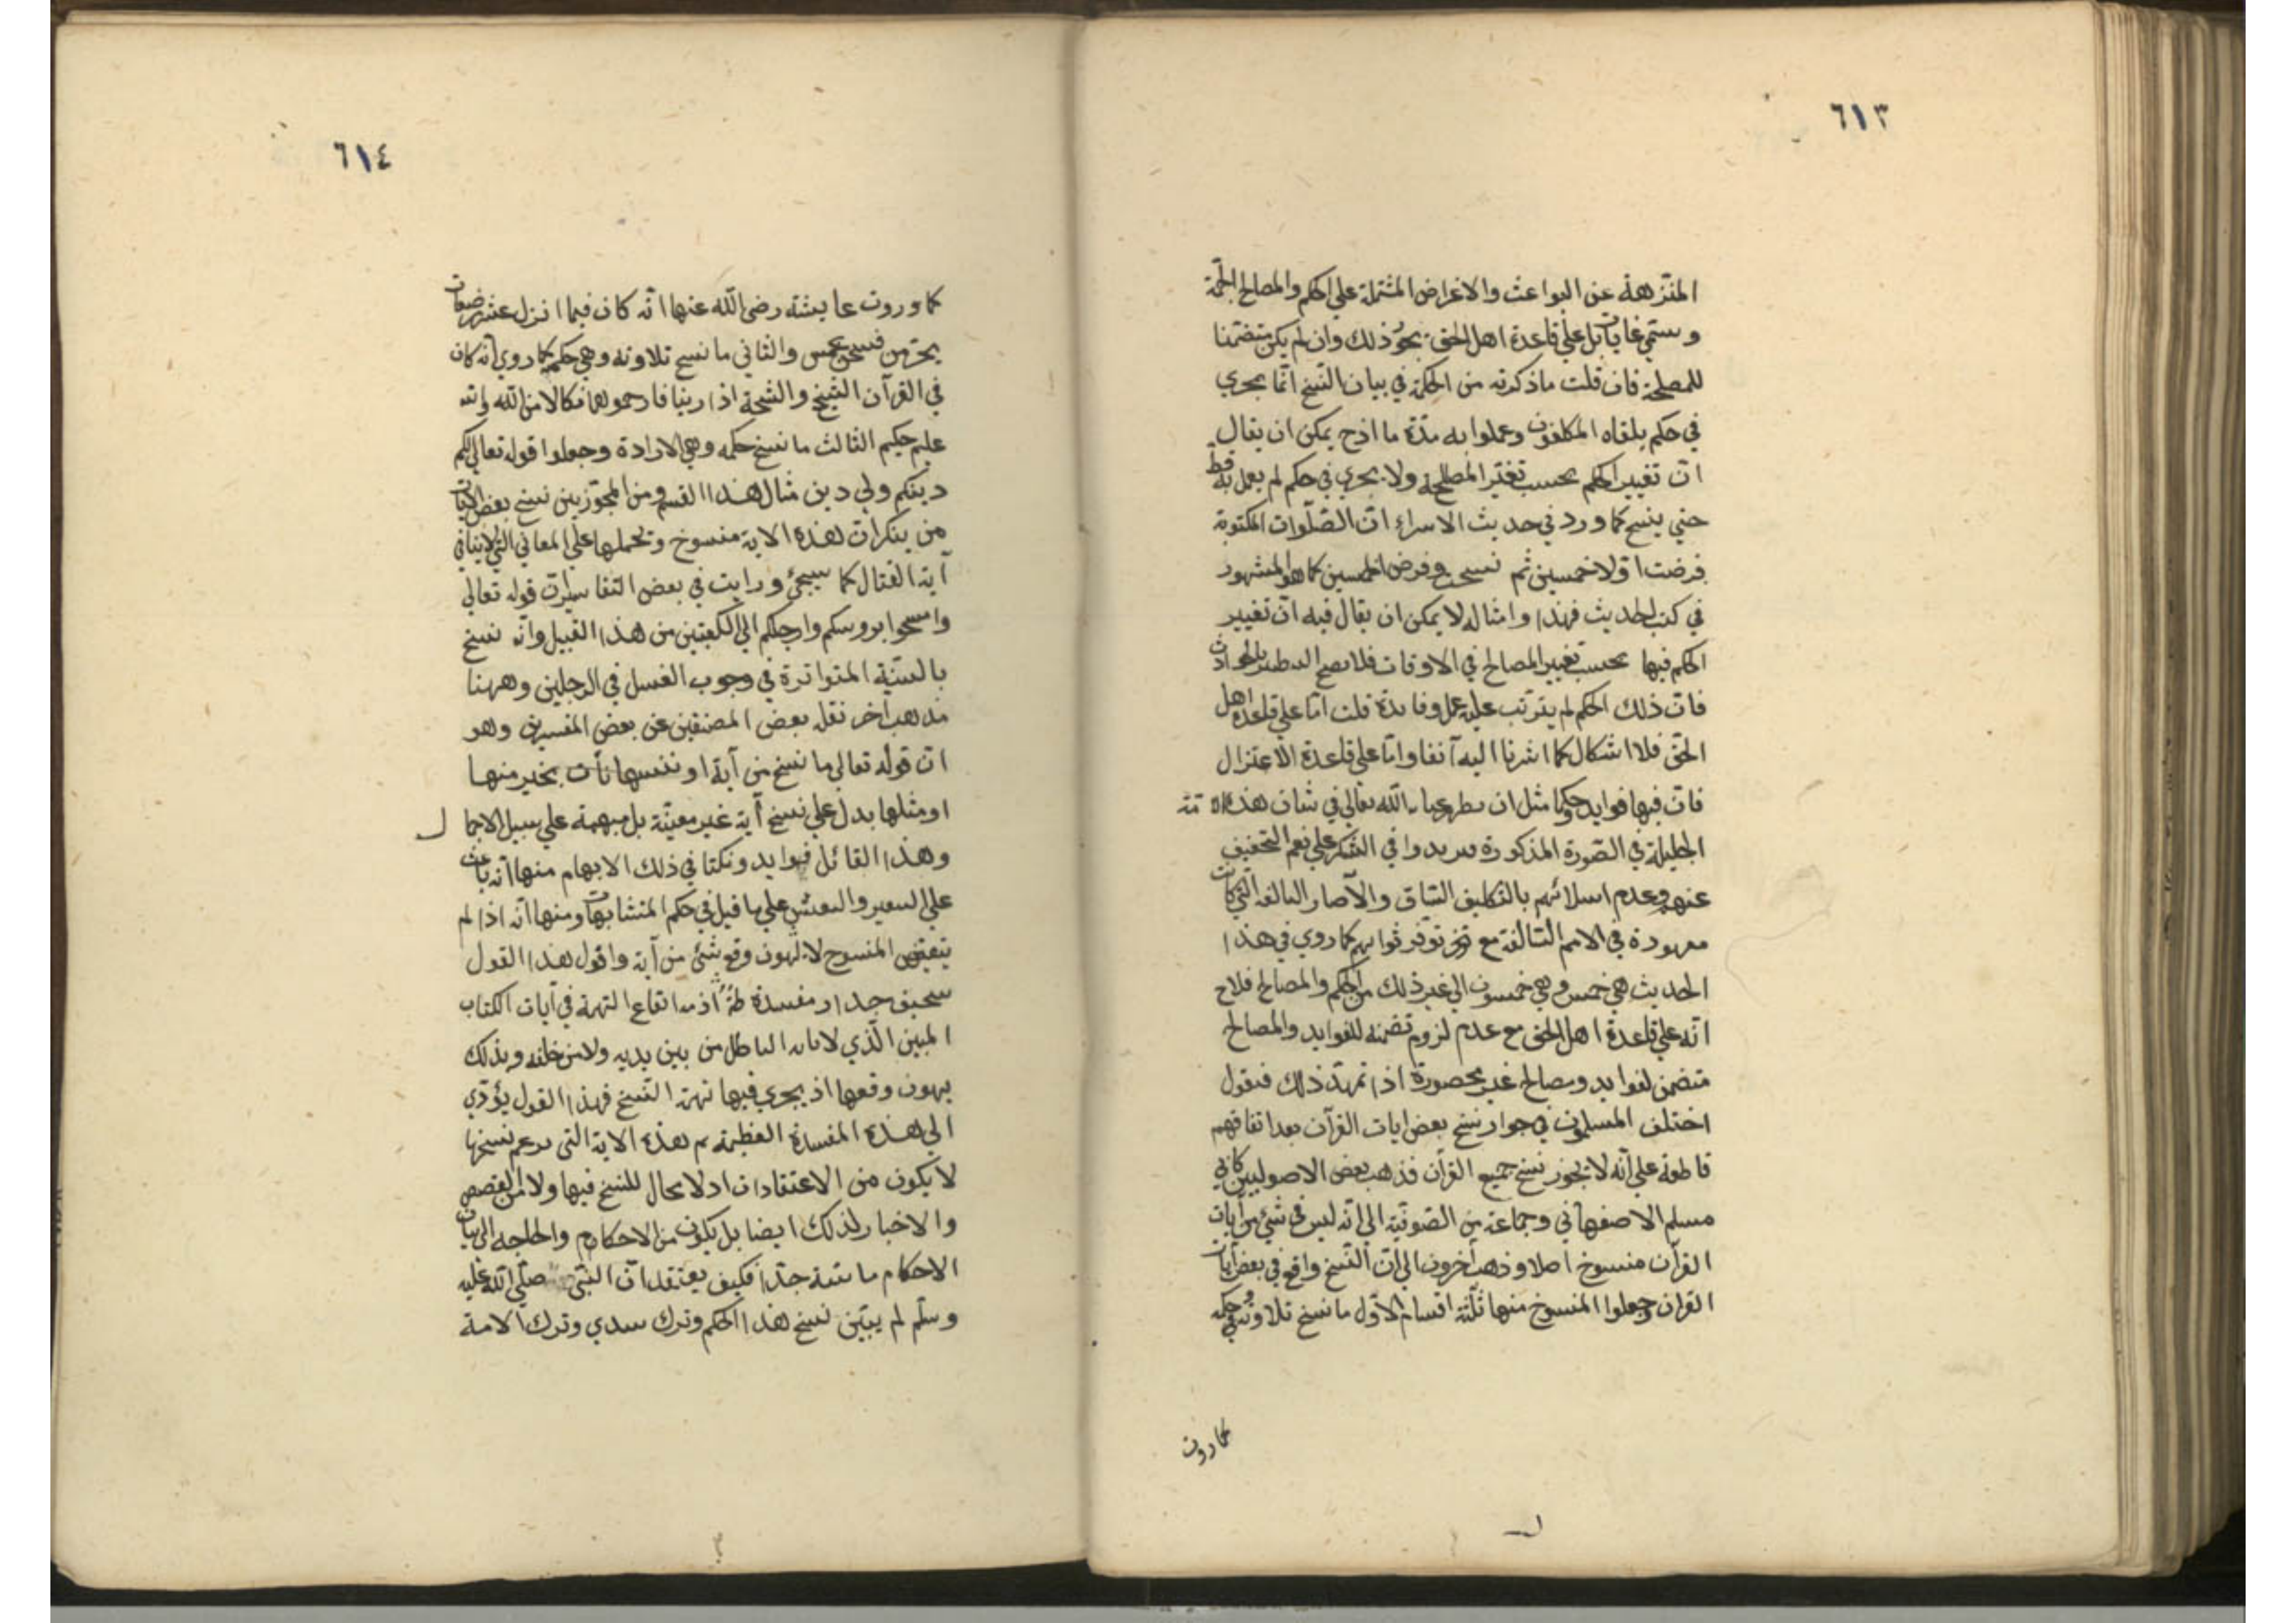 ٦١٣
المنزهة عن البواعث والاغراض المشتملة علي الحكم والمصالح الجمة
وستمي غايات بل علي قاعدة اهل الحق يجوز ذلك وان لم يكن متضمنا
للمصلحة فان قلت ماذكرته من الحكمة في بيان النسخ انما يجري
في حكم يلقاه المكلفون وعملوا به مدة ما اذح يمكن ان يقال
ان تغيير الحكم بحسب تغير المصلحة ولا يجري في حكم لم يعمل به قط
حتي ينسخ كما ورد في حديث الاسراء ان الصلوات المكتوبة
فرضت اولا خمسين ثم نسخ وفرض الخمس كما هو المشهور
في كتب الحديث فهذا وامثاله لا يمكن ان يقال فيه ان تغيير
الحكم فيها بحسب تغيير المصالح في الاوقات فلا يصح
فان ذلك الحكم لم يترتب عليه عمل وفايدة قلت اما علي قاعدة اهل
الحق فلا اشكال كما اشرنا اليه آنفا واما علي قاعدة الاعتزال
فان فيها فوايد وحكما مثل ان الله تعالي في شان هذه الامة
الجليلة في الصورة المذكورة في الشكر علي نعم التخفيف
عنهم وعدم بالتكاليف الشاق والآصار التي كانت
معهودة في الامم السالفة مع توفر ثوابهم كما روي في هذا
الحديث هي خمس وهي خمسون الي غير ذلك من الحكم والمصالح فلاح
انه علي قاعدة اهل الحق مع عدم لزوم تضمنه للفوايد والمصالح
متضمن لفوايد ومصالح غير محصورة اذا تمهد ذلك فنقول
اختلف المسلمون في جواز نسخ بعض ايات القرآن بعد اتفاقهم
قاطعة علي انه لا يجوز نسخ جميع القرآن فذهب بعض الاصوليين كابي
مسلم الاصفهاني وجماعة من الصوفية الي انه ليس في شيء من آيات
القرآن منسوخ اصلا وذهب آخرون الي ان النسخ واقع في بعض آيات
القران وجعلوا المنسوخ منها ثلثة اقسام الاول ما نسخ تلاوته وحكمه
كما روت
٦١٤
كما وروت عايشة رضي الله عنها انه كان فيما انزل عشر رضعات
يحرمن فنسخن بخمس والثاني ما نسخ تلاوته وهي حكمه كما روي انه كان
في القرآن الشيخ والشيخة اذا زنيا فارجموهما نكالا من الله والله
عليم حكيم الثالث ما نسخ حكمه وهي الارادة وجعلوا قوله تعالي لكم
دينكم ولي دين مثال هذا القسم ومن المجوزين نسخ بعض الآيات
من ينكر ان هذه الاية منسوخ وتحملها علي المعاني التي لا ينافي
آية القتال كما سيجئ ورايت في بعض التفاسير ان قوله تعالي
وامسحوا بروسكم وارجلكم الي الكعبين من هذا القبيل وانه نسخ
بالسنة المتواترة في وجوب الغسل في الرجلين وههنا
مذهب آخر نقل بعض المصنفين عن بعض المفسرين وهو
ان قوله تعالي ما ننسخ من آية او ننسها نأت بخير منها
او مثلها يدل علي نسخ آية غير معينة بل مبهمة علي سبيل الاجمال
وهذا القائل فوايد ونكتا في ذلك الابهام منها انه باعث
علي علي ما قيل في حكم المتشابهات ومنها انه اذا لم
يتعين المنسوخ لا يهون وقع شئ من آية واقول هذا القول
سخيف جدا ومفسدة اذ ايقاع التهمة في آيات الكتاب
المبين الذي لا ياتيه الباطل من بين يديه ولا من خلفه وبذلك
يهون وقعها اذ يجري فيها تهمة النسخ فهذا القول يؤدي
الي هذه المفسدة العظيمة ثم هذه الاية التي نسخها
لا يكون من الاعتقادات اذ لا مجال للنسخ فيها ولا من القصص
والاخبار لذلك ايضا بل يكون من الاحكام والحاجة الي بيان
الاحكام ماسة جدا فكيف يعتقد ان النبي صلي الله عليه
وسلم لم يبين نسخ هذا الحكم وترك سدي وترك الامة